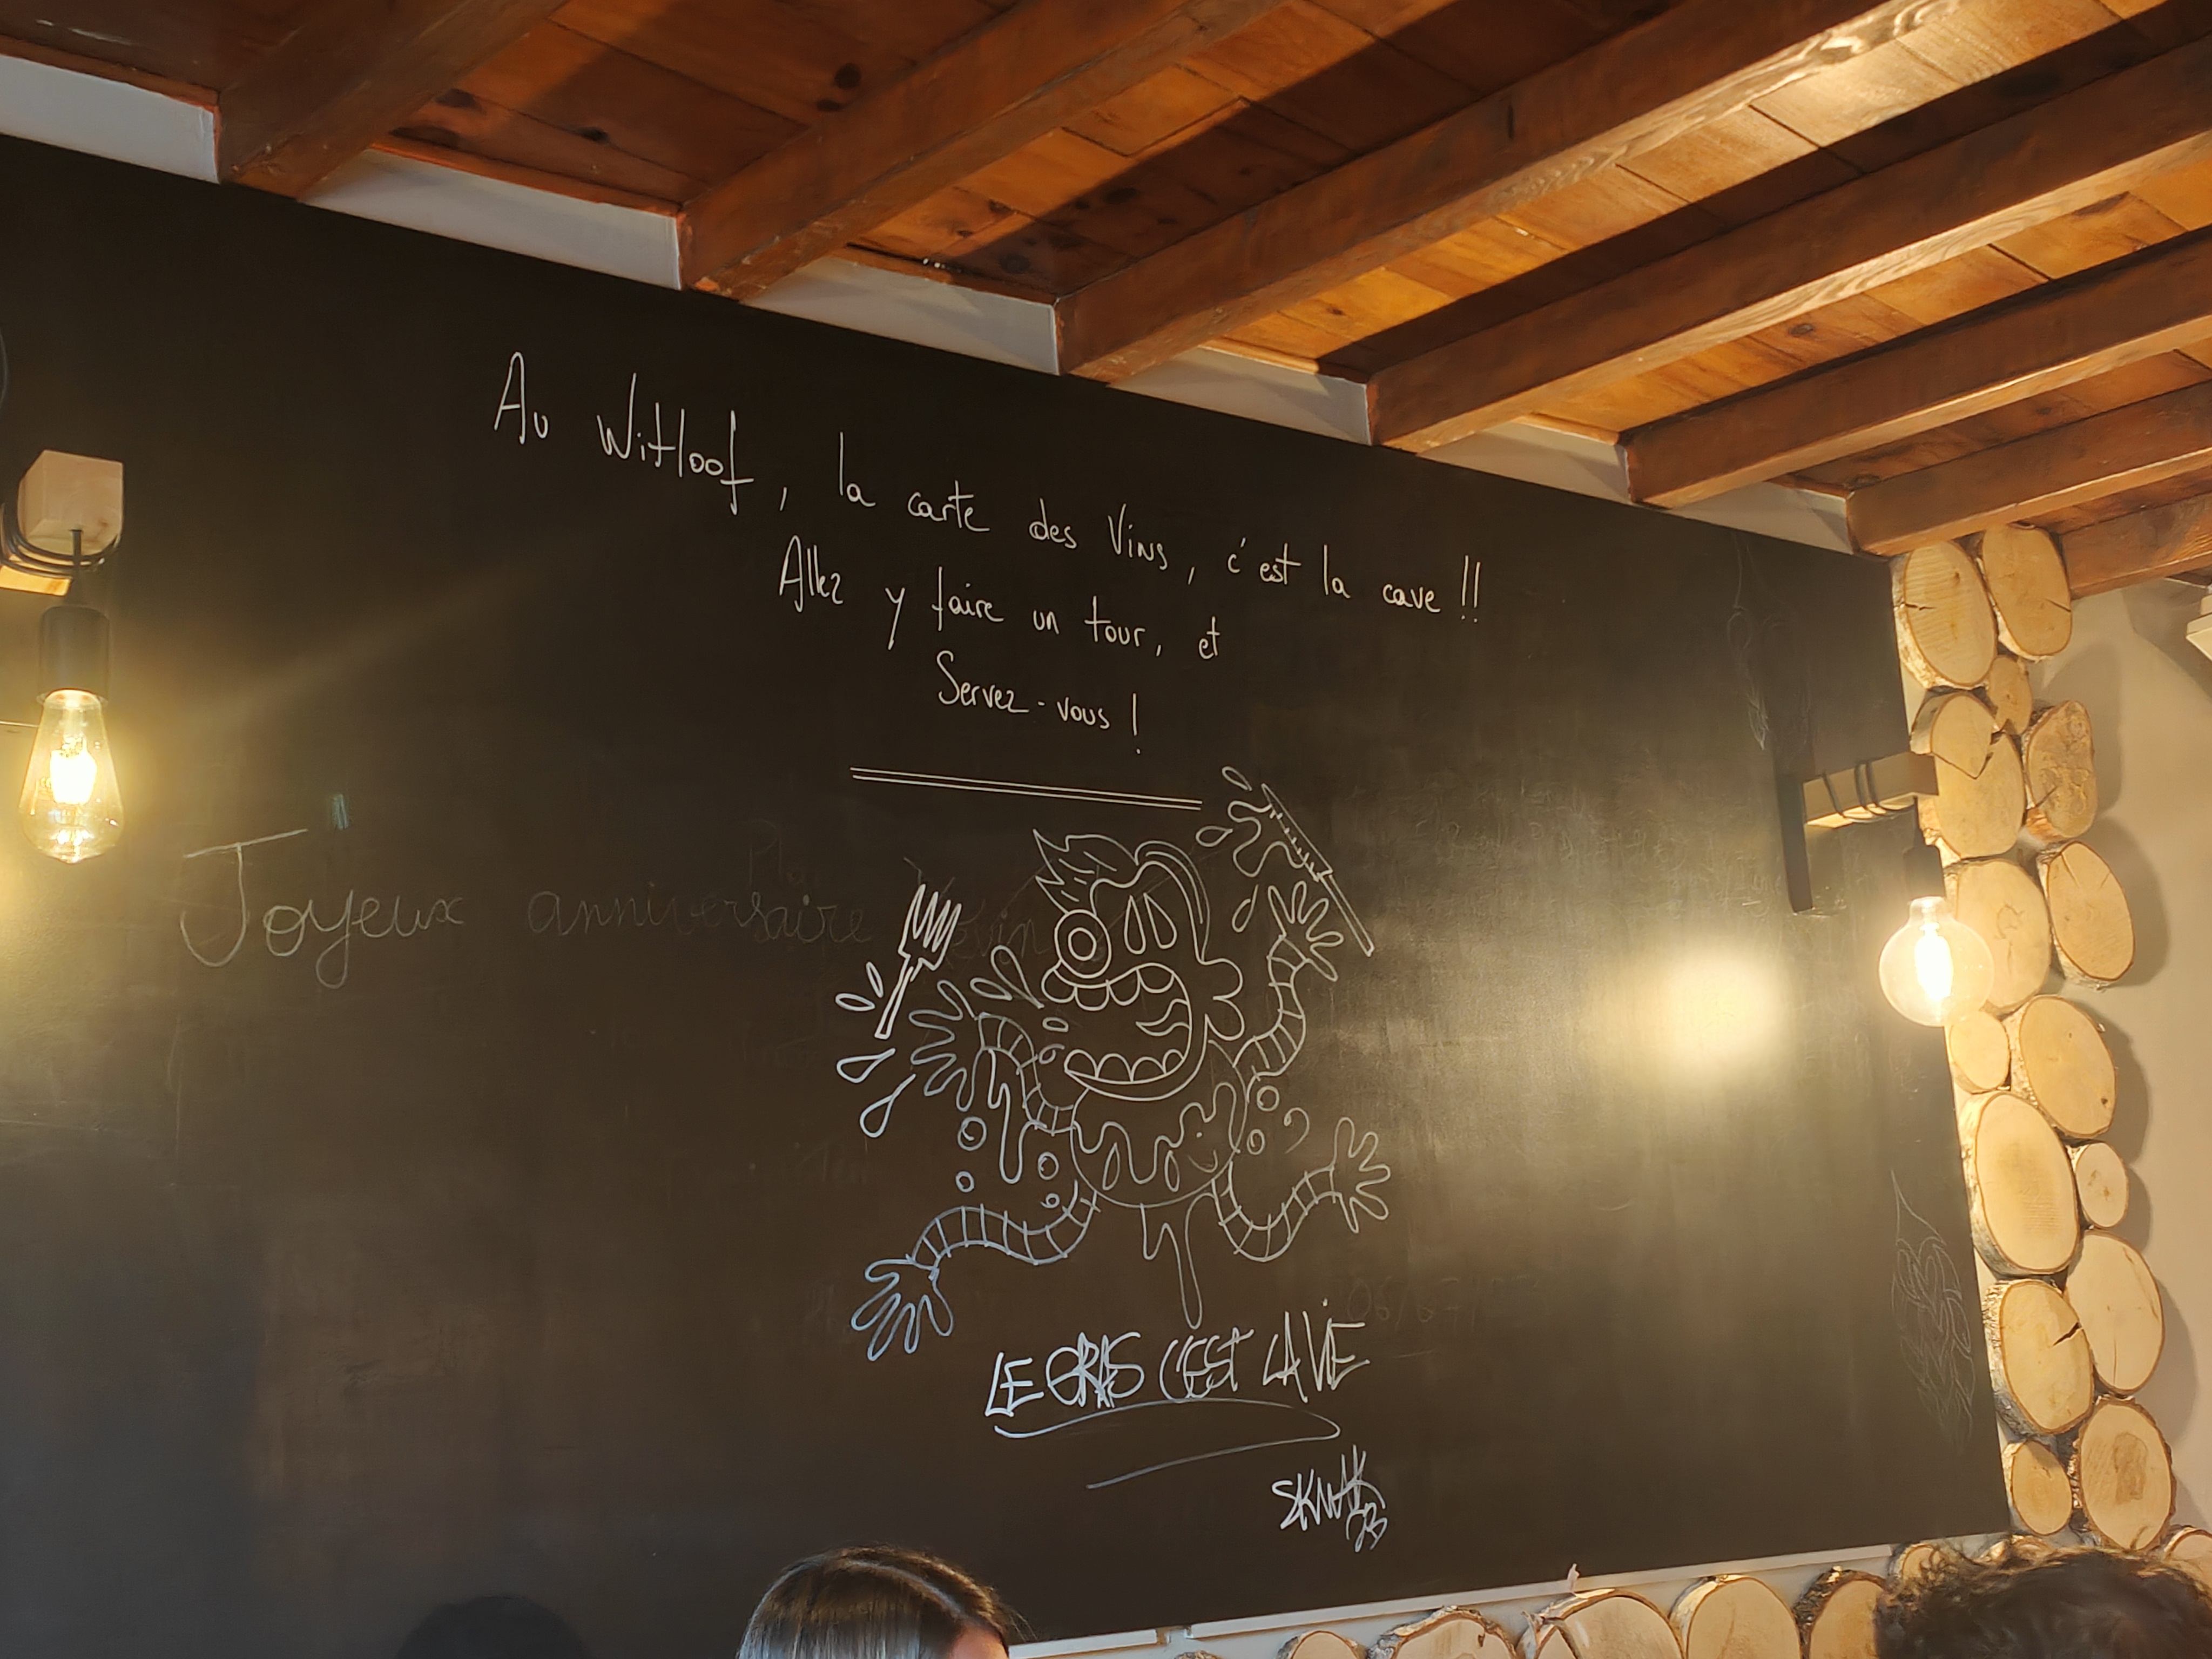 Au Witloof, la carte des Vins, c'est la cave !!
Allez y faire un tour, et
Servez-vous !
Joyeux anniversaire
LE GRAS C'EST LA VIE
SKWAK
23